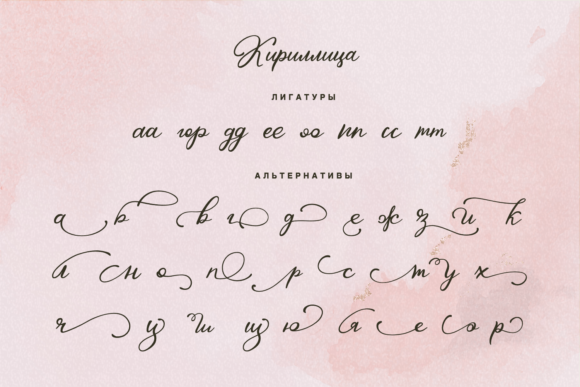 Кириллица
ЛИГАТУРЫ
аа гор дд ее оо пп сс тт
АЛЬТЕРНАТИВЫ
а б в г д е ж з и к
л н о п р с т у х
ч ц ш щ ю я е о р